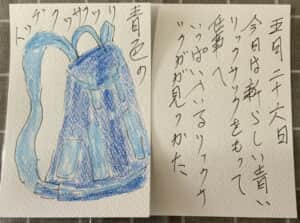 青色の
五月二十六日
今日は新らしい青い
リックサックをもって
仕事へ
いっぱいはいるリュックサ
ックがが見つかた